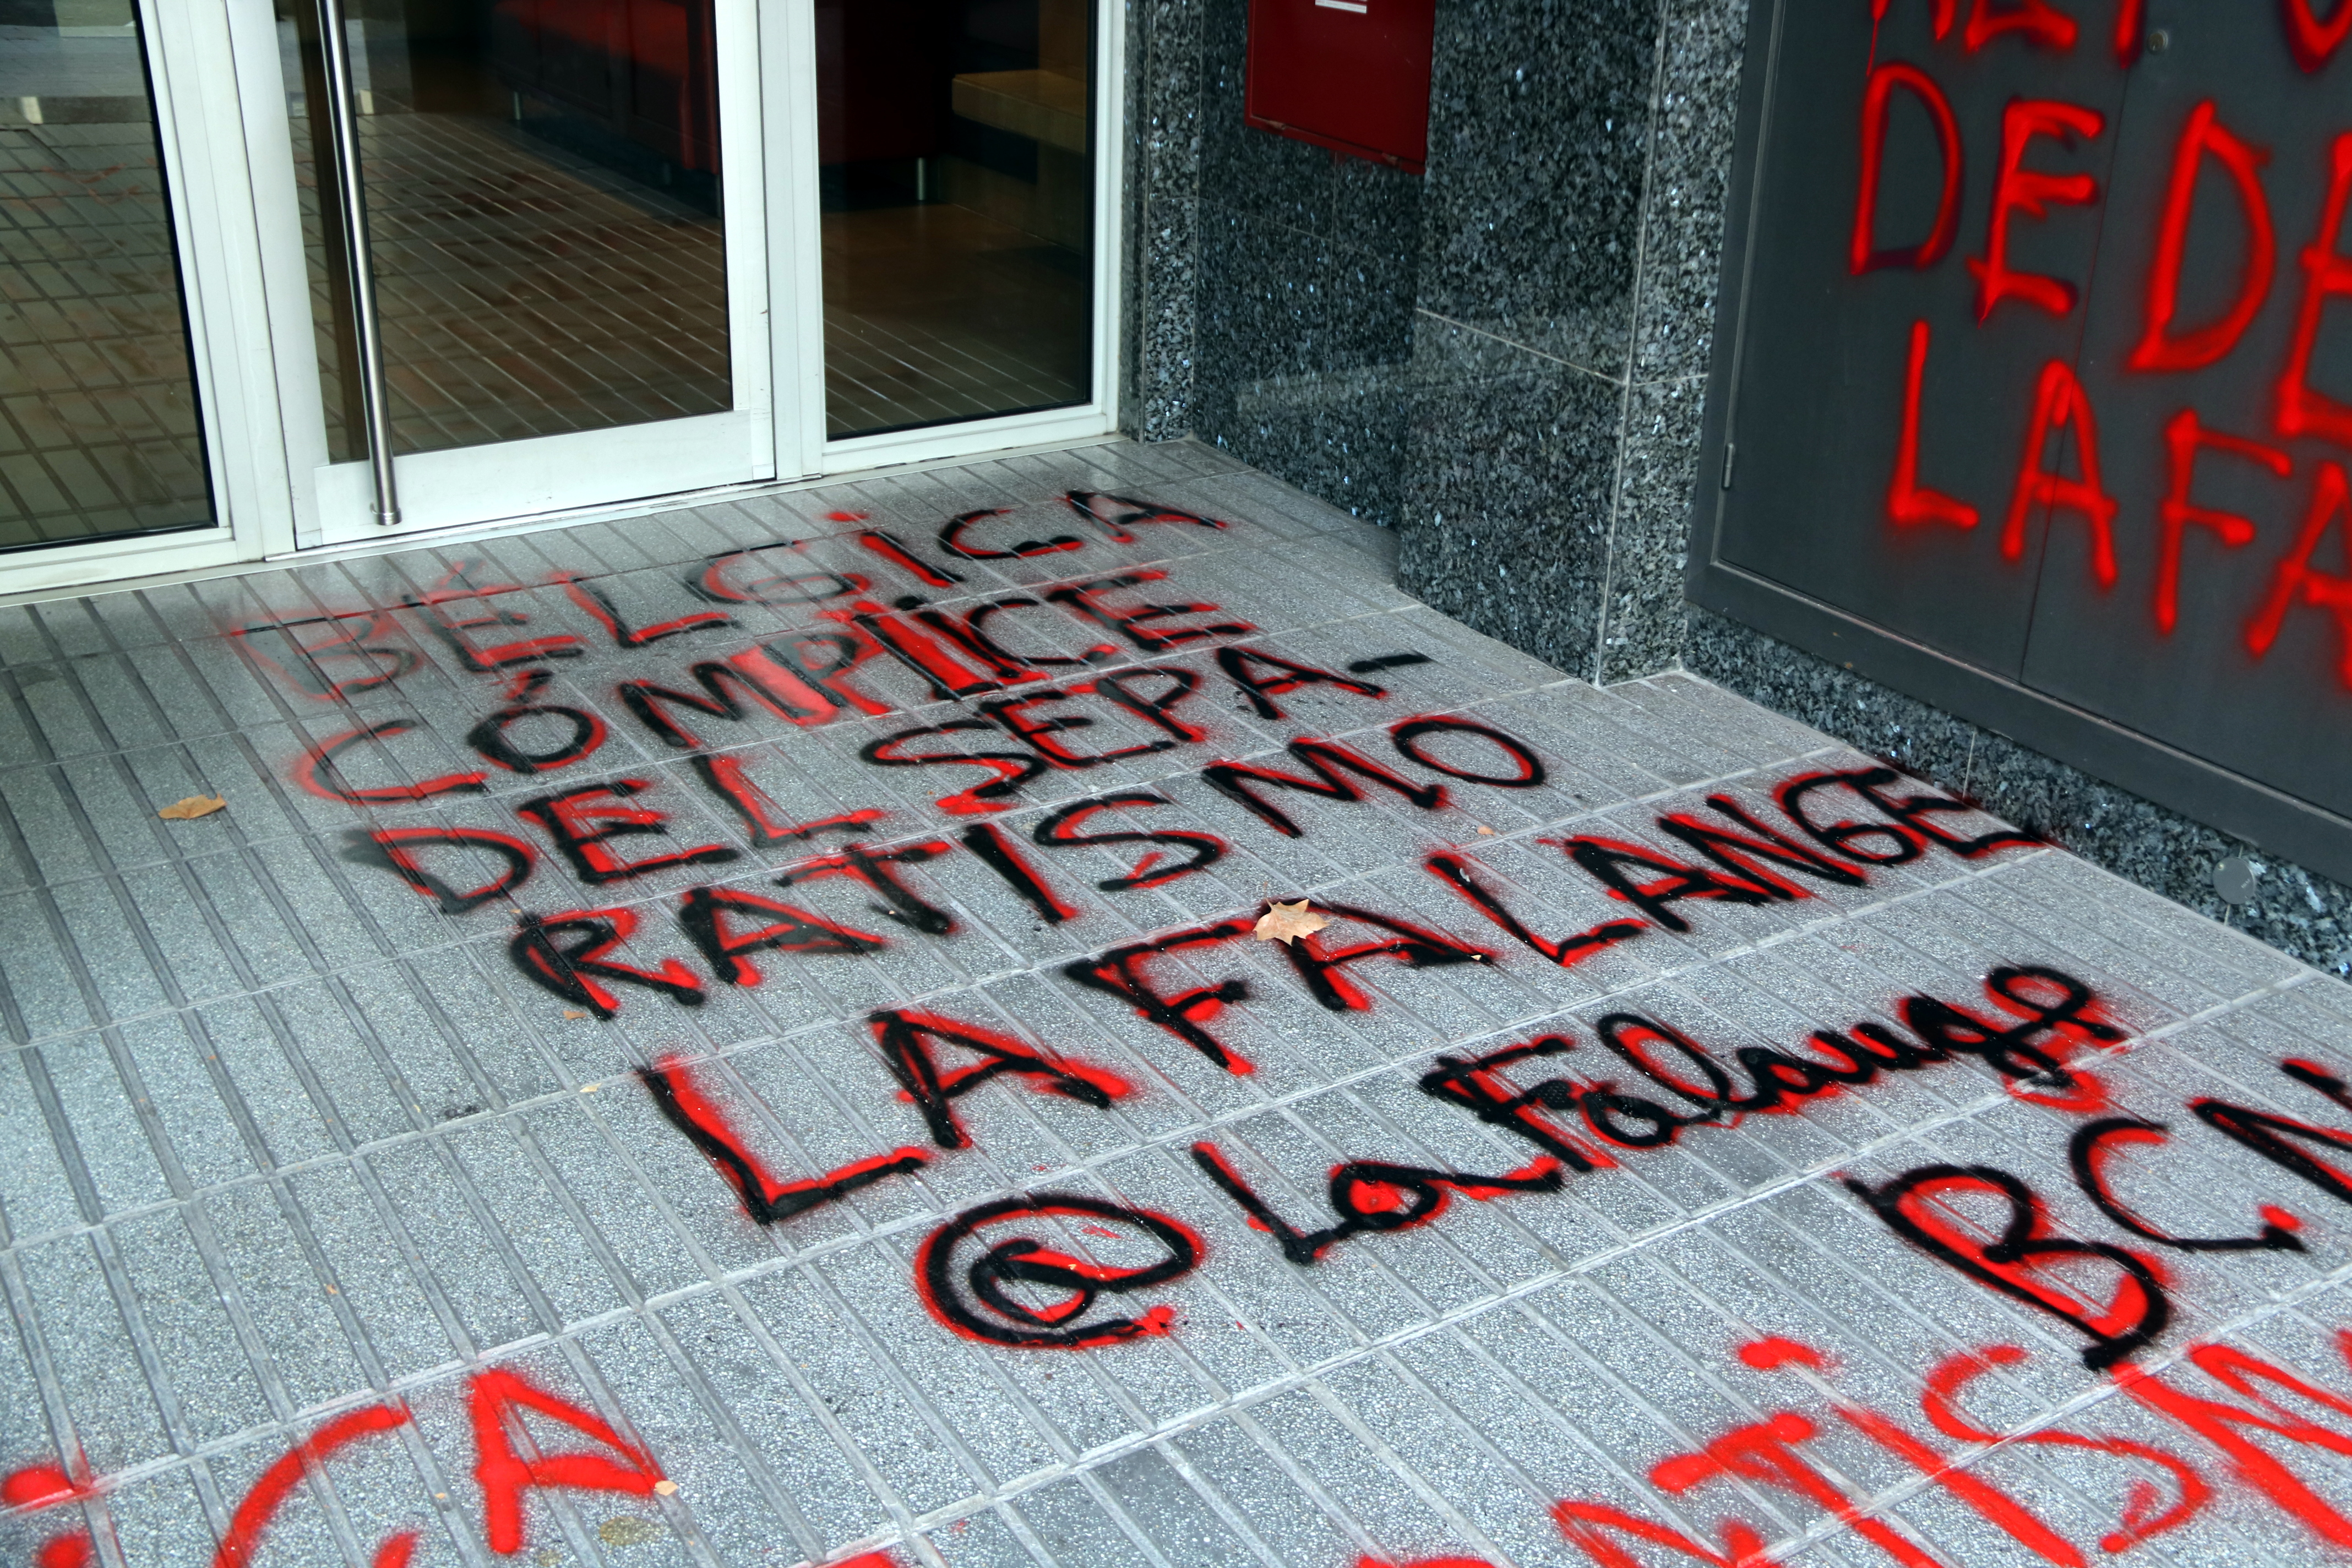 BÉLGICA
CÓMPLICE
DEL SEPA-
RATISMO
LA FALANGE
@LaFalange
BCN
DE
LA FA
ICA
ATISM